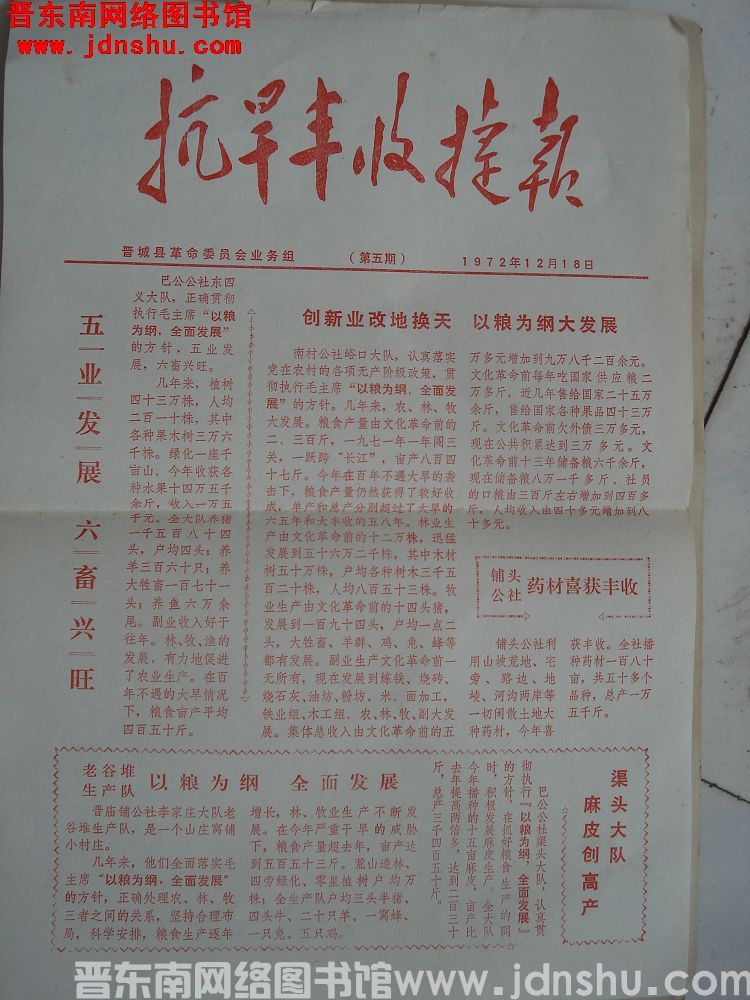 晋东南网络图书馆
www.jdnshu.com
抗旱丰收捷报
晋城县革命委员会业务组 （第五期） 1972年12月18日
五业发展 六畜兴旺
巴公公社东四
义大队，正确贯彻
执行毛主席“以粮
为纲，全面发展”
的方针，五业发
展，六畜兴旺。
几年来，植树
四十三万株，人均
二百一十株，其中
各种果木树三万六
千株。绿化一座千
亩山。今年收获各
种水果十四万五千
余斤，收入一万五
千元。全大队养猪
一千五百八十四
头，户均四头；养
羊三百六十只；养
大牲畜一百七十一
头；养鱼六万余
尾。副业收入好于
往年。林、牧、渔的
发展，有力地促进
了农业生产。在百
年不遇的大旱情况
下，粮食亩产平均
四百五十斤。
创新业改地换天 以粮为纲大发展
南村公社峪口大队，认真落实
党在农村的各项无产阶级政策，贯
彻执行毛主席“以粮为纲，全面发
展”的方针。几年来，农、林、牧
大发展。粮食产量由文化革命前的
二、三百斤，一九七一年一年闯三
关，一跃跨“长江”，亩产八百四
十七斤。今年在百年不遇大旱的袭
击下，粮食产量仍然获得了较好收
成，单产和总产分别超过了大旱的
六五年和大丰收的五八年。林业生
产由文化革命前的十二万株，迅猛
发展到五十六万二千株，其中木材
树五十万株，户均各种树木三千五
百二十株，人均八百五十三株。牧
业生产由文化革命前的十四头猪，
发展到一百九十四头，户均一点二
头，大牲畜、羊群、鸡、兔、蜂等
都有发展。副业生产文化革命前一
无所有，现在发展到炼铁、烧砖、
烧石灰、油坊、粉坊、米、面加工，
铁业组、木工组。农、林、牧、副大发
展。集体总收入由文化革命前的五
万多元增加到九万八千二百余元。
文化革命前每年吃国家供应粮二
万多斤，近几年售给国家二十五万
余斤，售给国家各种果品四十三万
斤。文化革命前欠外债三万多元，
现在公共积累达到三万多元。文
化革命前十三年储备粮六千余斤，
现在储备粮八万一千多斤，社员
的口粮由三百斤左右增加到四百多
斤，人均收入由四十多元增加到八
十多元。
铺头公社 药材喜获丰收
铺头公社利
用山坡荒地、宅
旁、路边、地
堎、河沟两岸等
一切闲散土地大
种药材，今年喜
获丰收。全社播
种药材一百八十
亩，共五十多个
品种，总产一万
五千斤。
老谷堆生产队 以粮为纲 全面发展
晋庙铺公社李家庄大队老
谷堆生产队，是一个山庄窝铺
小村庄。
几年来，他们全面落实毛
主席“以粮为纲，全面发展”
的方针，正确处理农、林、牧
三者之间的关系，坚持合理布
局，科学安排，粮食生产逐年
增长，林、牧业生产不断发
展。在今年严重干旱的威胁
下，粮食产量超去年，亩产达
到五百五十三斤。荒山造林、
四旁绿化、零星植树户均万
株；全生产队户均三头半猪、
四头牛、二十只羊、一窝蜂、
一只兔、五只鸡。
渠头大队
麻皮创高产
巴公公社渠头大队，认真贯
彻执行“以粮为纲，全面发展”
的方针，在抓好粮食生产的同
时，积极发展麻皮生产。全大队
今年播种的十五亩麻皮，亩产比
去年提高两倍多，达到二百三十
斤，总产三千四百五十斤。
晋东南网络图书馆www.jdnshu.com